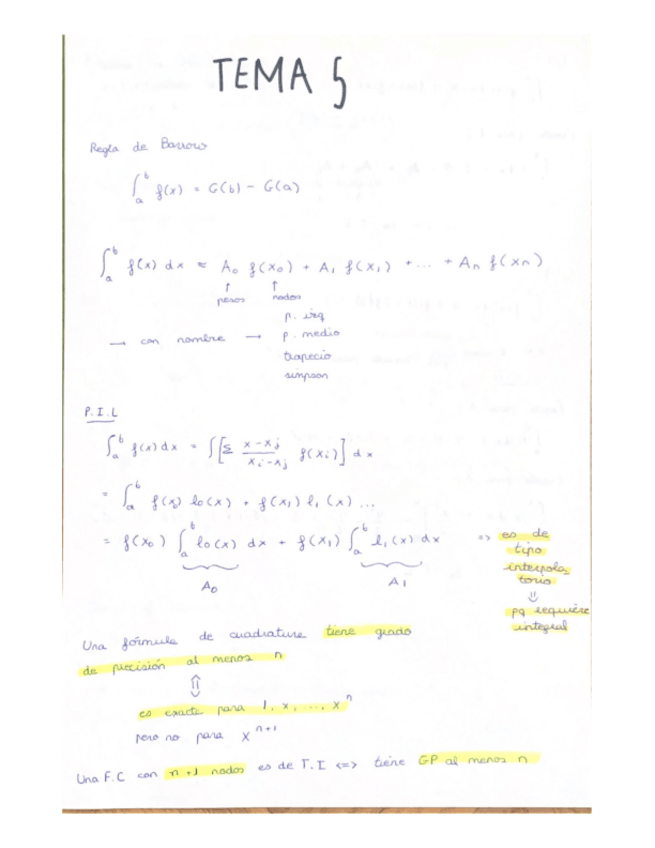 TEMA 5
Regla de Barrow
∫_a^b f(x) = G(b) - G(a)
∫_a^b f(x) dx ≈ A₀ f(x₀) + A₁ f(x₁) + ... + Aₙ f(xₙ)
↑ pesos ↑ nodos
p. izq
→ con nombre → p. medio
trapecio
simpson
P.I.L
∫_a^b f(x) dx = ∫[Σ (x-xⱼ)/(xᵢ-xⱼ) f(xᵢ)] dx
= ∫_a^b f(x₀) l₀(x) + f(x₁) l₁(x) ...
= f(x₀) ∫_a^b l₀(x) dx + f(x₁) ∫_a^b l₁(x) dx => es de
tipo
interpola_
torio
A₀ A₁
⇓
pq requiere
integral
Una fórmula de cuadratura tiene grado
de precisión al menos n
⇕
es exacta para 1, x, ..., xⁿ
pero no para xⁿ⁺¹
Una F.C con n+1 nodos es de T.I <=> tiene GP al menos n